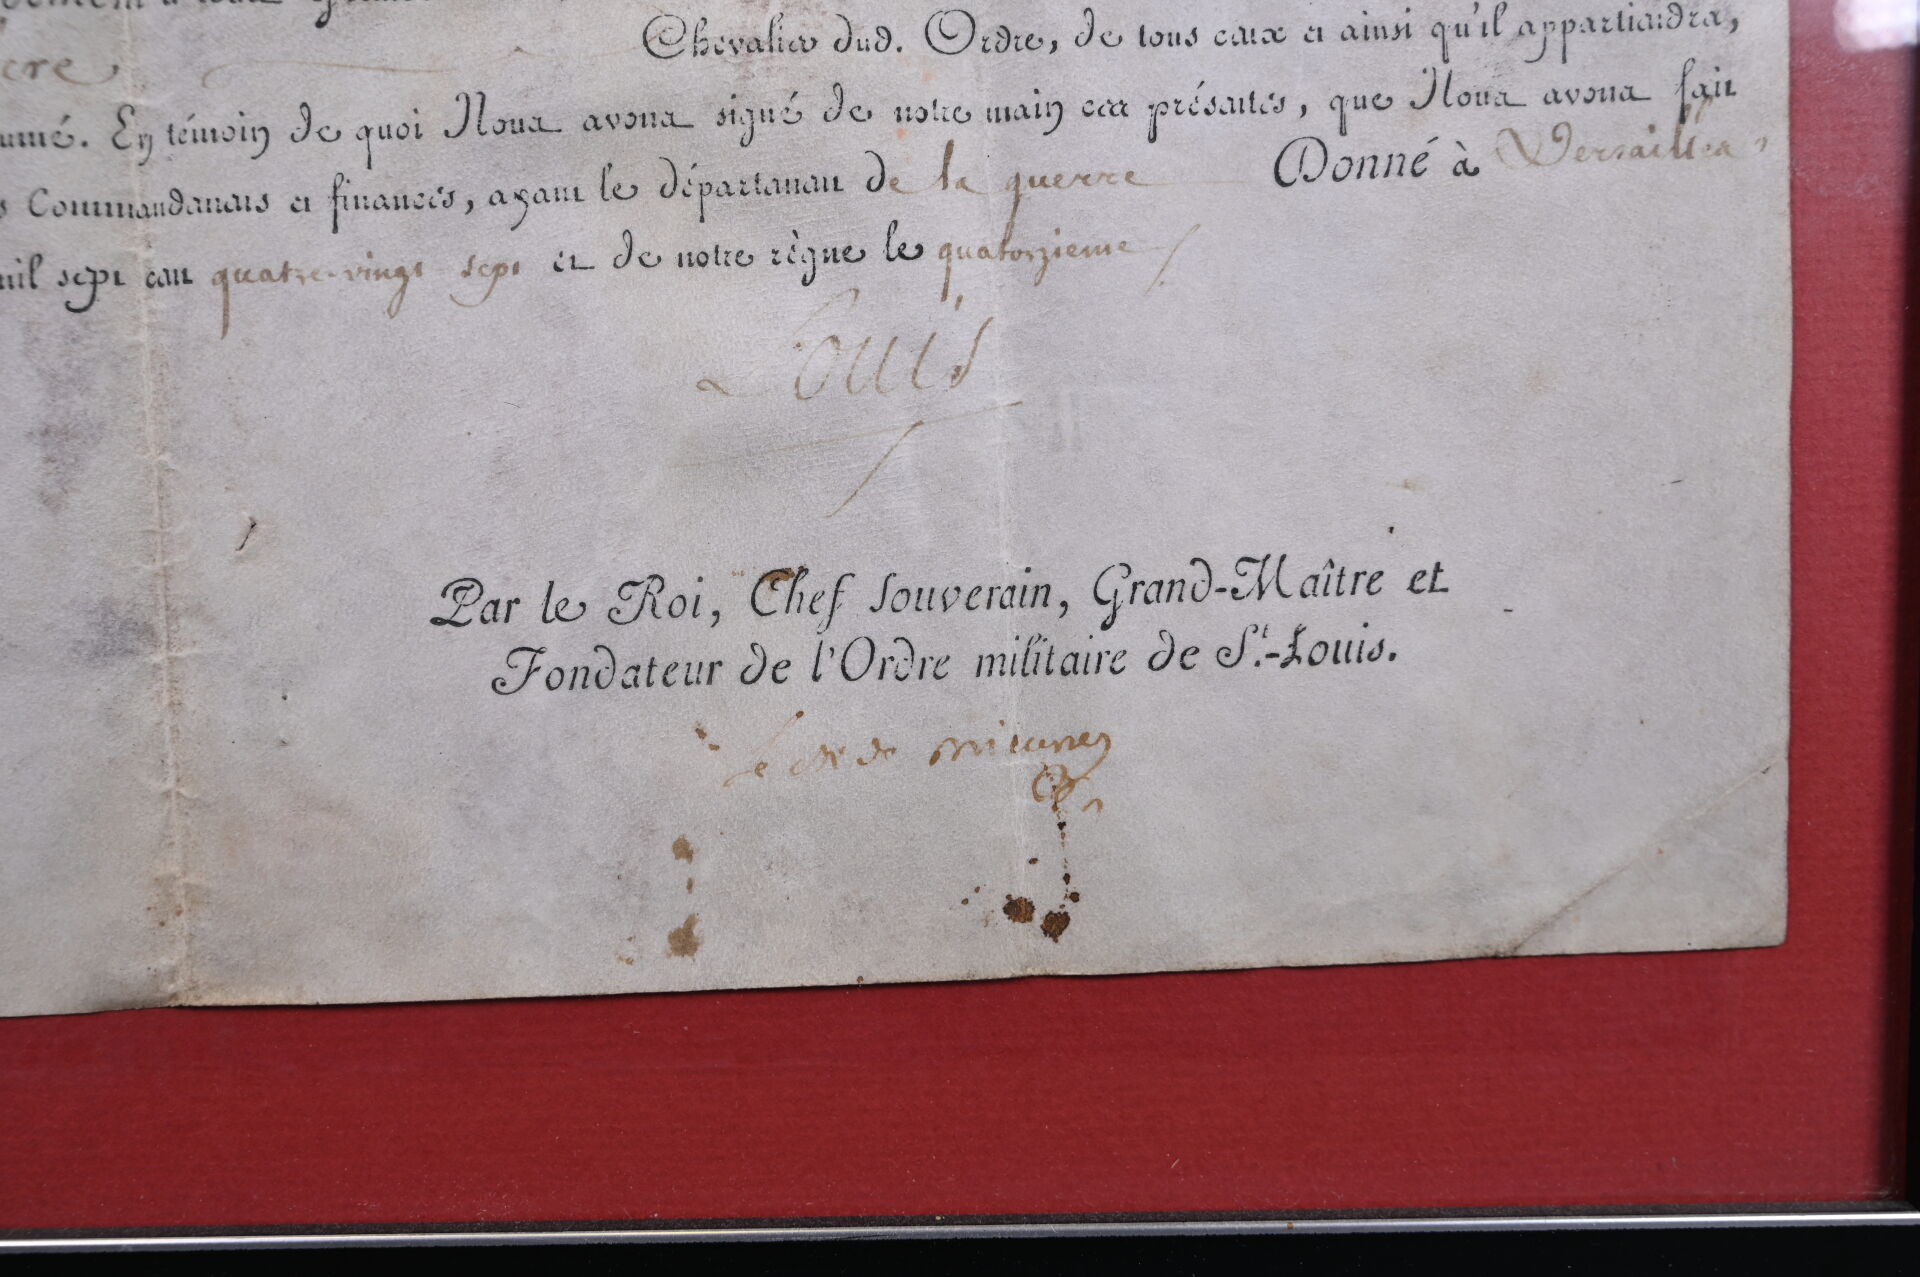 Chevalier dud. Ordre, de tous ceux et ainsi qu'il appartiendra,
cre
umé. En témoin de quoi Nous avons signé de notre main ces présentes, que Nous avons fait
s Commandemens et finances, ayant le département de la guerre Donné à Versailles
mil sept cent quatre-vingt sept et de notre règne le quatorzieme
Louis
Par le Roi, Chef Souverain, Grand-Maître et
Fondateur de l'Ordre militaire de St.-Louis.
Le cte de Brienne